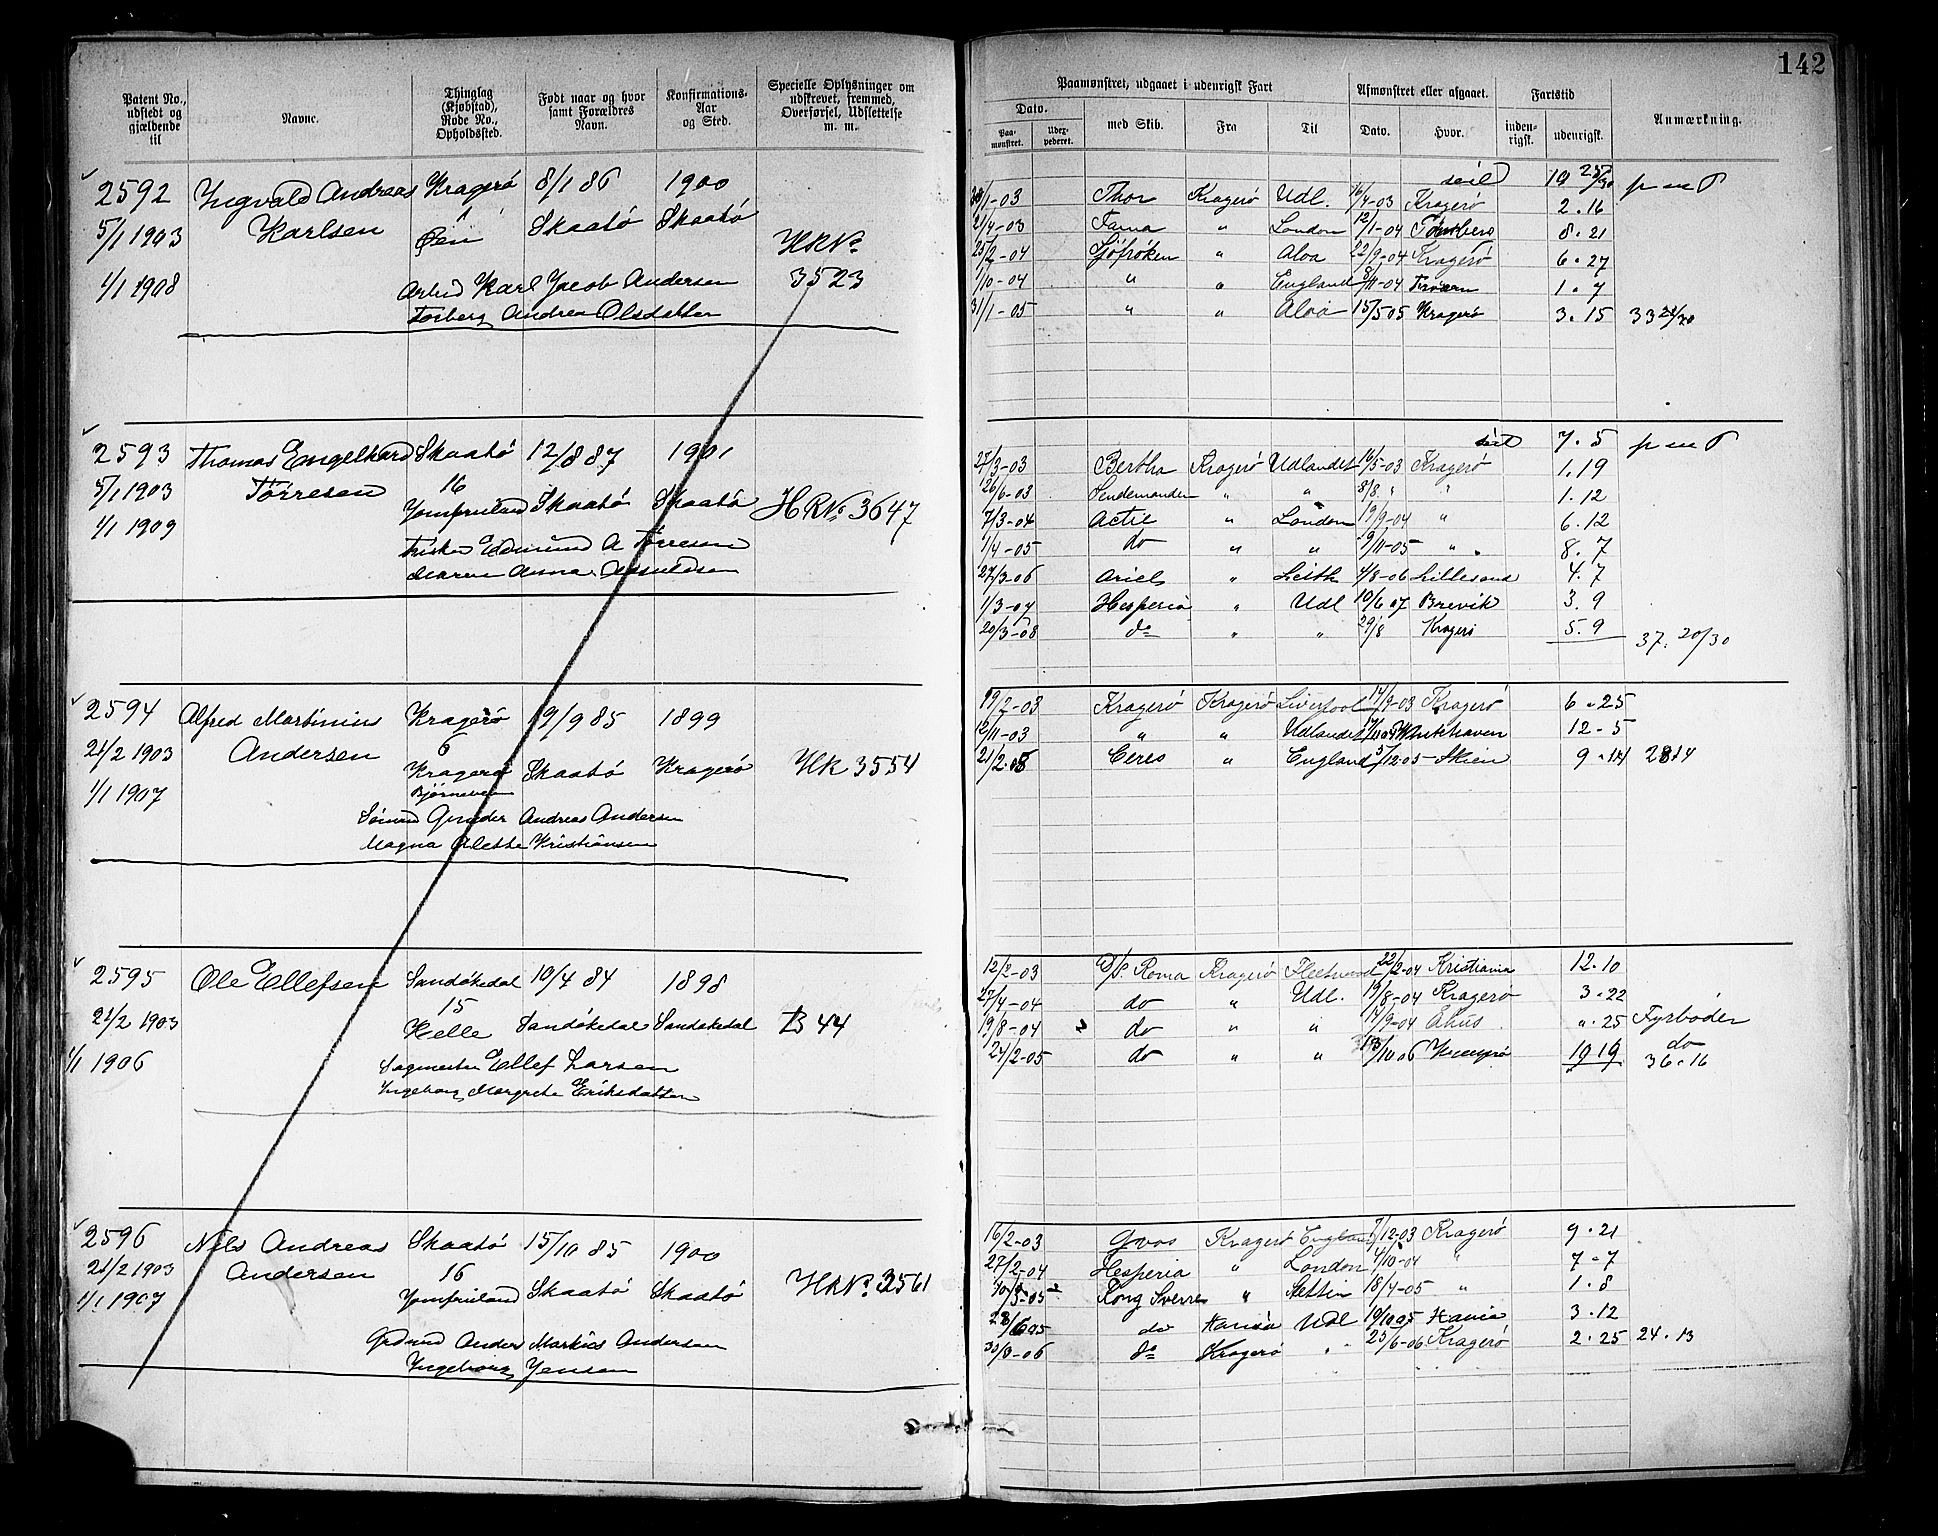 142
Patent No., udstedt og gjældende til
Navne.
Thinglag (Kjøbstad), Rode No., Opholdssted.
Født naar og hvor samt Forældres Navn.
Konfirmations-Aar og Sted.
Specielle Oplysninger om udskrevet, fremmed, Overførsel, Udslettelse m. m.
Paamønstret, udgaaet i udenrigsk Fart
Afmønstret eller afgaaet.
Fartstid
Anmærkning.
Dato.
Paa-mønstret. Uder-pederet.
med Skib. Fra Til Dato. Hvor. inden-rigsk. udenrigsk.
2592 Ingvald Andreas Kragerø 8/1 86 1900
5/1 1903 Karlsen 1 Øen Skaatø Skaatø HRNo
1/1 1908 Arbed Karl Jacob Andersen 3523
Torberg Andrea Olsdatter
seil 19 25/30 pmT
30/1-03 Thor Kragerø Udl. 16/4-03 Kragerø 2.16
21/4-03 Fama " London 12/1-04 Tønsberg 8.21
25/2-04 Sjøfrøken " Aloa 22/9-04 Kragerø 6.27
1/10-04 " " England 8/11-04 1.7
31/1-05 " " Aloa 15/5 05 Kragerø 3.15
2593 Thomas Engelhard Skaatø 12/8 87 1901
5/1 1903 Tørresen 16
Jomfruland Skaatø Skaatø HRNo 3647
1/1 1909
Fisker Edmund A Tørresen
Maren Anna
seil 7.5 pmT
25/3-03 Bertha Kragerø Udlandet 16/5-03 Kragerø 1.19
26/6-03 Søndemanden " " 8/8 " " 1.12
7/3-04 Activ " London 19/9-04 " 6.12
1/4-05 do " " 9/11-05 " 8.7
27/3-06 Ariel " Leith 4/8-06 Lillesand 4.7
1/3-07 Hesperia " Udl 10/6 07 Brevik 3.9
20/3-08 do " " 29/8 Kragerø 5.9 37.20/30
2594 Alfred Martinius Kragerø 19/9 85 1899
21/2 1903 Andersen 6
Kragerø Skaatø Kragerø HR 3554
1/1 1907 Bjørneveien
Sømand Gunder Andreas Andersen
Magna Alette Kristiansen
19/2-03 Kragerø Kragerø Liverpool 14/9-03 Kragerø 6.25
12/11-03 " " Udlandet 12.5
21/2-05 Ceres " England 5/12-05 Skien 9.14 28 14
2595 Ole Ellefsen Sandøkedal 10/4 84 1898
21/2 1903 15
Helle Sandøkedal Sandøkedal B 44
1/1 1906 Sagmester Ellef Larsen
Ingeborg Margrete Eriksdatter
12/2-03 D/S Roma Kragerø Fleetwood 22/2-04 Kristiania 12.10
27/4-04 do " Udl. 19/8-04 Kragerø 3.22
19/8-04 do " " 14/9-04 Ahus ".25 Fyrbøder
24/2-05 do " " 13/10 06 Kragerø 19 19 do 36.16
2596 Nils Andreas Skaatø 15/10 85 1900
21/2 1903 Andersen 16
1/1 1907 Jomfruland Skaatø Skaatø HRNo 3561
Anders Markus Andersen
Ingeborg Jensen
16/2-03 Kragerø England 7/12-03 Kragerø 9.21
27/2-04 Hesperia " London 4/10-04 " 7-7
Kong Sverre " Stettin 18/4-05 " 1.8
do Udl 19/10 05 3.12
do Kragerø " 25/6-06 Kragerø 2.25 24.13